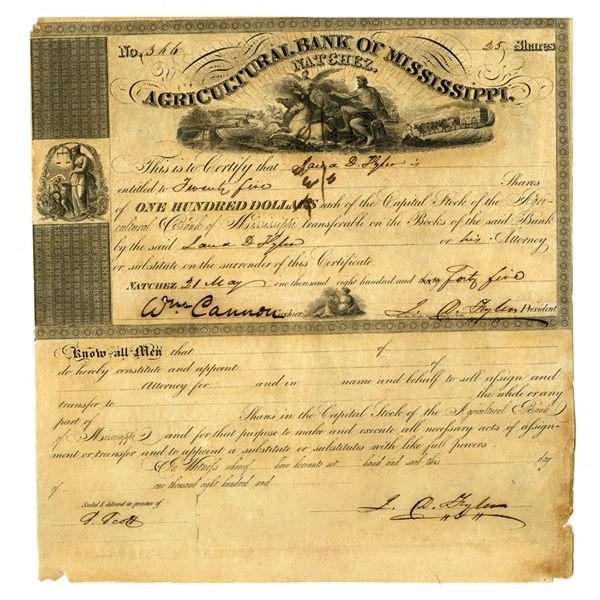 No. 366 25 Shares
AGRICULTURAL BANK OF MISSISSIPPI.
NATCHEZ.
This is to Certify that D. is
entitled to Twenty five Shares
of ONE HUNDRED DOLLARS each of the Capital Stock of the Agri-
cultural Bank of Mississippi transferable on the Books of the said Bank
by the said D. or his Attorney
or substitute on the surrender of this Certificate.
NATCHEZ 21 May one thousand eight hundred and Forty five
Wm Cannon Cashier President
Know all Men that of
do hereby constitute and appoint of
Attorney for and in name and behalf to sell assign and
transfer to the whole or any
part of Shares in the Capital Stock of the Agricultural Bank
of Mississippi and for that purpose to make and execute all necessary acts of assign-
ment or transfer and to appoint a substitute or substitutes with like full powers
In Witness whereof have hereunto set hand and seal this day
of one thousand eight hundred and
Sealed & delivered in presence of
Scott